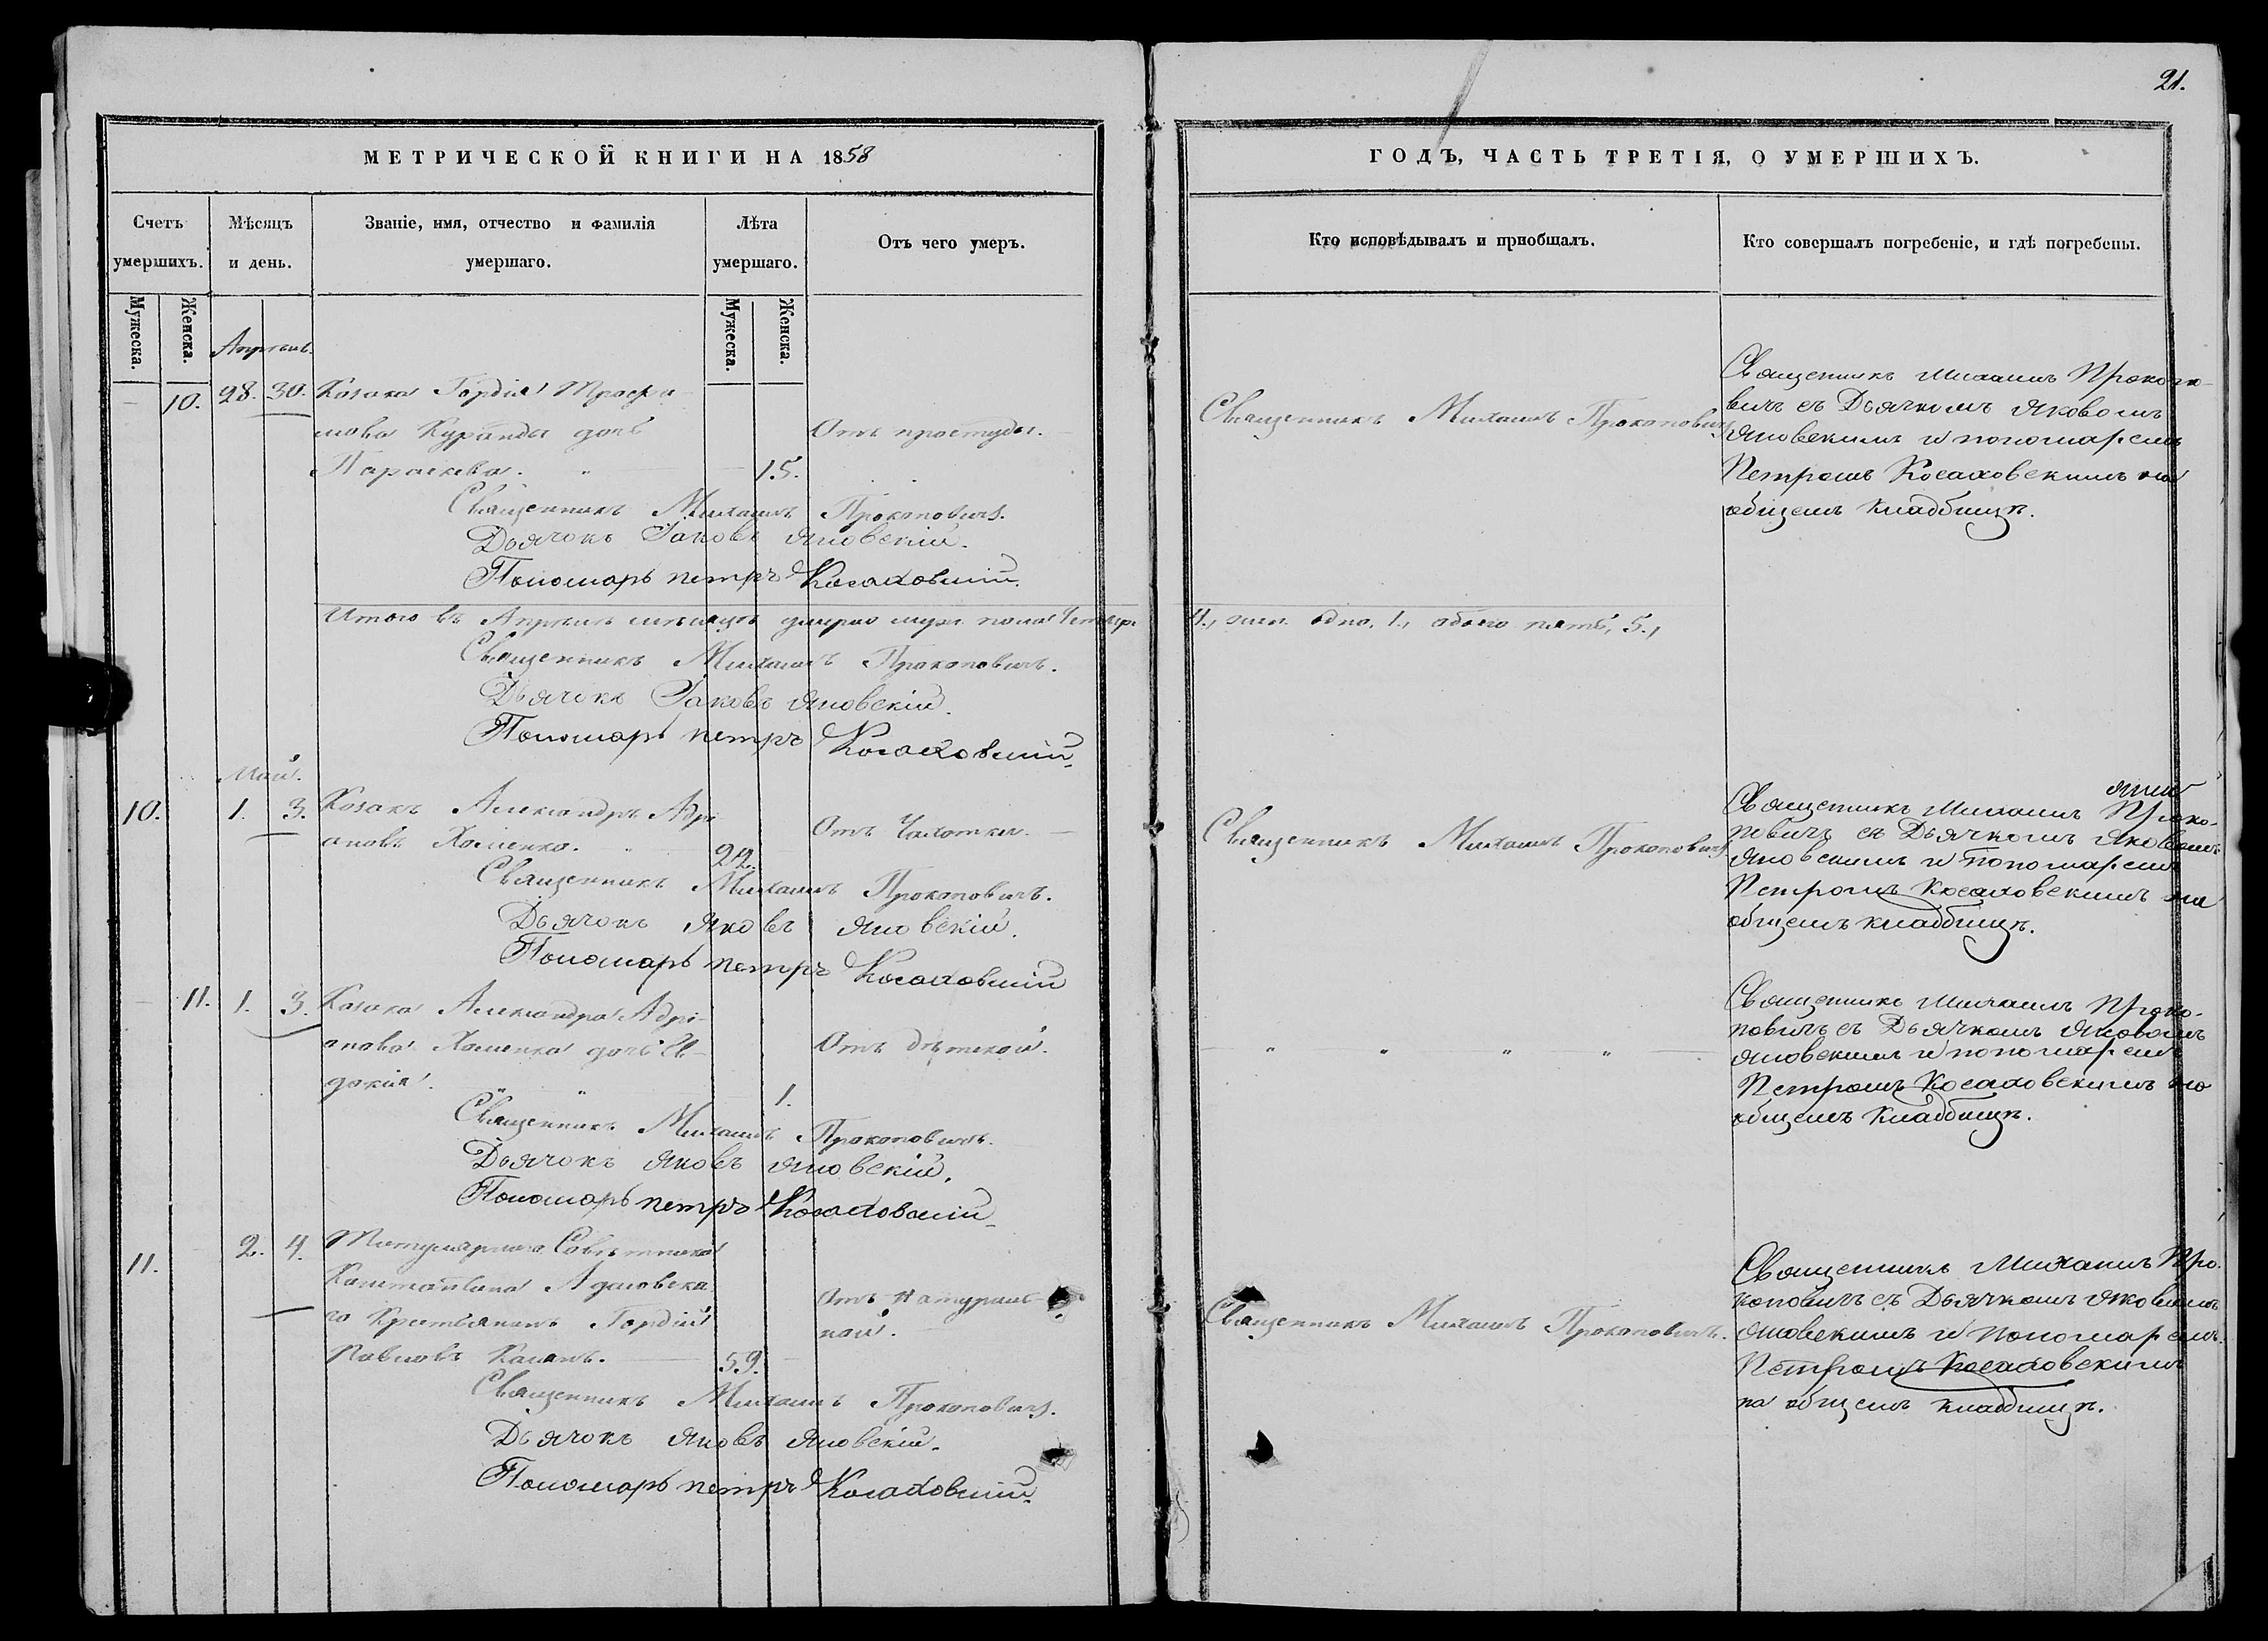 21.
МЕТРИЧЕСКОЙ КНИГИ НА 1858
Счетъ умершихъ.
Мужеска.
Женска.
Мѣсяцъ и день.
Званіе, имя, отчество и фамилія умершаго.
Лѣта умершаго.
Мужеска.
Женска.
Отъ чего умеръ.
ГОДЪ, ЧАСТЬ ТРЕТІЯ, О УМЕРШИХЪ.
Кто исповѣдывалъ и пріобщалъ.
Кто совершалъ погребеніе, и гдѣ погребены.
Апрѣль.
10. 28. 30. Козака Гордія
Куринды дочь
Параскева. 15.
Отъ простуды.
Священникъ Михаилъ Прокоповичъ
Священникъ Михаилъ Прокопо-
вичъ съ Дьячкомъ Яковомъ
Яновскимъ и пономаремъ
Петромъ Косаховскимъ на
общемъ кладбищѣ.
Священникъ Михаилъ Прокоповичъ.
Дьячокъ Іаковъ Яновскій.
Пономарь петръ Косаховскій.
Итого въ Апрѣлѣ мѣсяцѣ умерло муж. пола четыре
4., жен. одно, 1., обоего пять, 5.,
Священникъ Михаилъ Прокоповичъ.
Дьячокъ Іаковъ Яновскій.
Пономарь петръ Косаховскій.
Май.
10. 1. 3. Козакъ Александръ Адрі-
ановъ Хоменко. 22.
Отъ Чахотки.
Священникъ Михаилъ Прокоповичъ
Священникъ Михаилъ Проко-
повичъ съ Дьячкомъ Яковомъ
Яновскимъ и пономаремъ
Петромъ Косаховскимъ на
общемъ кладбищѣ.
Священникъ Михаилъ Прокоповичъ.
Дьячокъ Яковъ Яновскій.
Пономарь петръ Косаховскій
11. 1. 3. Козака Александра Адрі-
анова Хоменка дочь Ев-
докія. 1.
Отъ дѣтской.
" " " "
Священникъ Михаилъ Проко-
повичъ съ Дьячкомъ Яковомъ
Яновскимъ и пономаремъ
Петромъ Косаховскимъ на
общемъ кладбищѣ.
Священникъ Михаилъ Прокоповичъ.
Дьячокъ Яковъ Яновскій.
Пономарь петръ Косаховскій.
11. 2. 4. Титулярнаго Совѣтника
Константина Адамовска-
го Крестьянинъ Гордій
Павловъ 59.
Отъ натураль-
ной.
Священникъ Михаилъ Прокоповичъ.
Священникъ Михаилъ Про-
коповичъ съ Дьячкомъ Яковомъ
Яновскимъ и пономаремъ
Петромъ Косаховскимъ
на общемъ кладбищѣ.
Священникъ Михаилъ Прокоповичъ.
Дьячокъ Яковъ Яновскій.
Пономарь петръ Косаховскій.